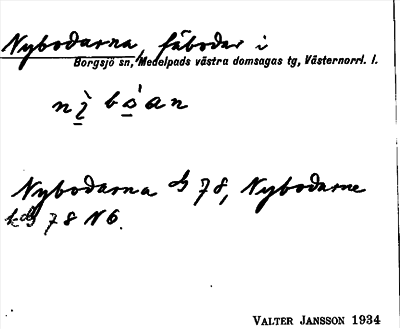 Nybodarna, fäbodar i
Borgsjö sn, Medelpads västra domsagas tg, Västernorrl. l.
Nybodarna 78, Nybodarne
78 N6.
VALTER JANSSON 1934